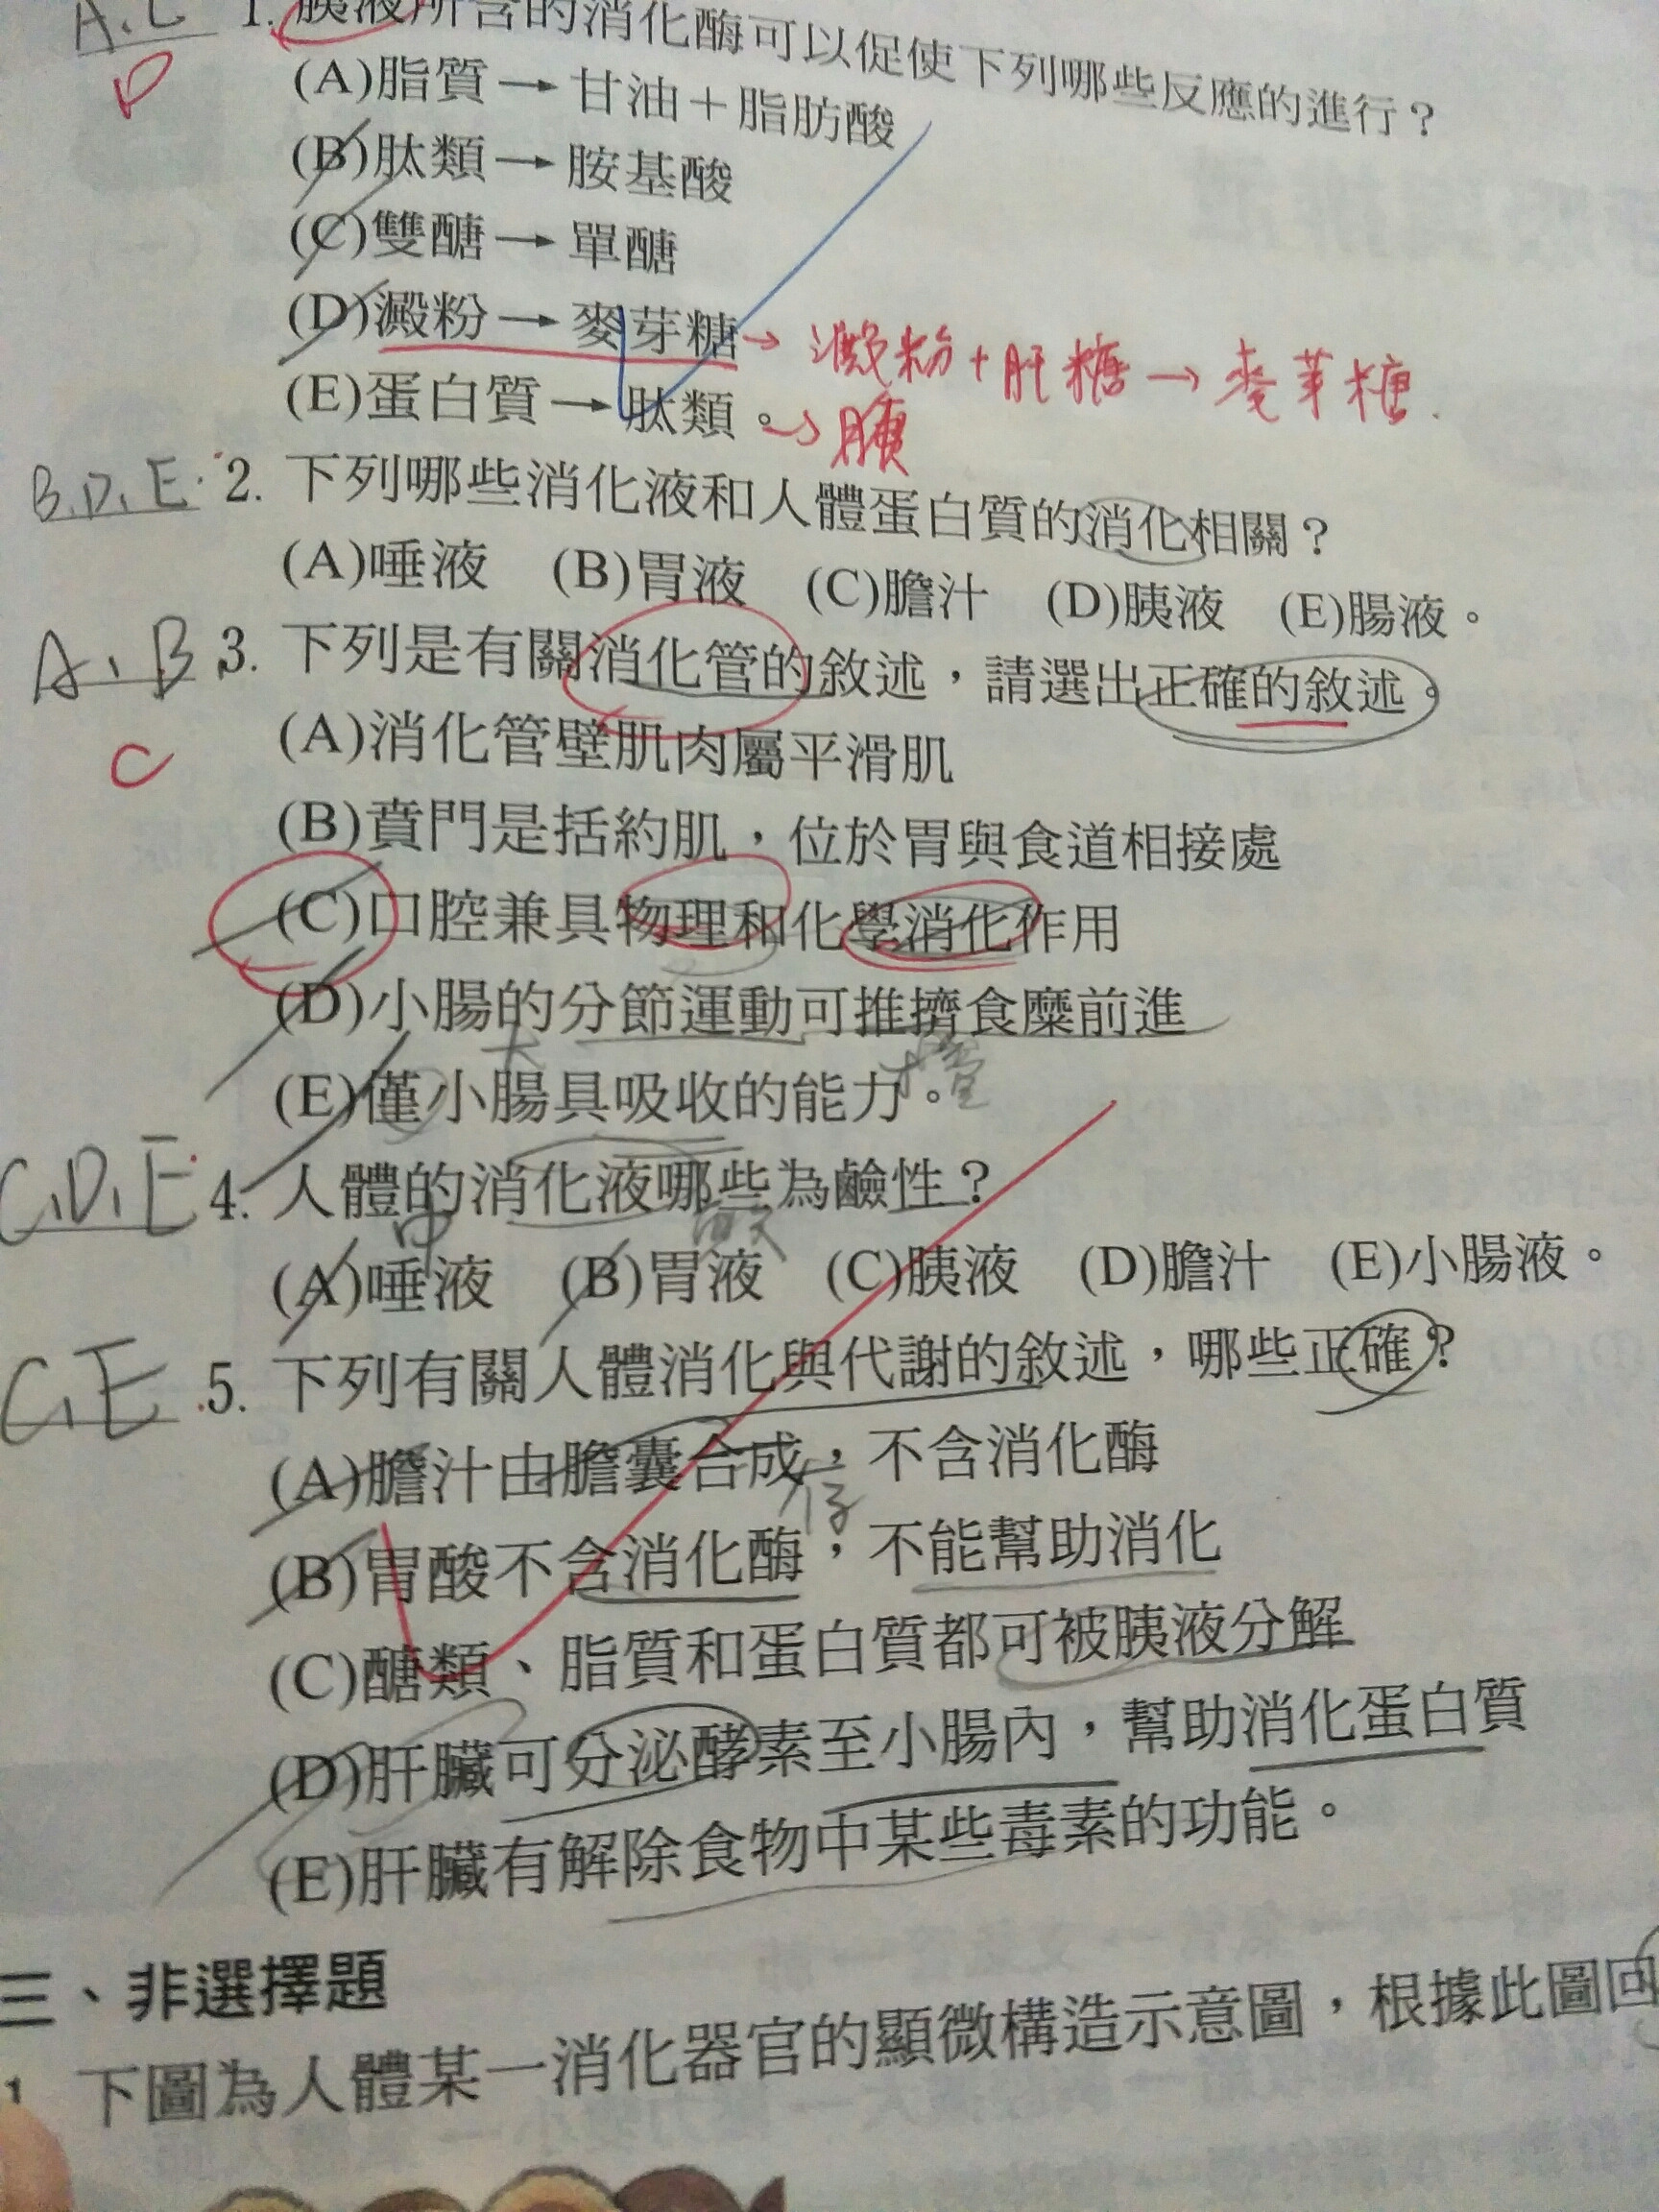 1. 胰液所含的消化酶可以促使下列哪些反應的進行？
D
(A)脂質→甘油＋脂肪酸
(B)肽類→胺基酸
(C)雙醣→單醣
(D)澱粉→麥芽糖→澱粉+肝糖→麥芽糖.
(E)蛋白質→肽類。→胰
B.D.E. 2. 下列哪些消化液和人體蛋白質的消化相關？
(A)唾液 (B)胃液 (C)膽汁 (D)胰液 (E)腸液。
A、B 3. 下列是有關消化管的敘述，請選出正確的敘述。
C
(A)消化管壁肌肉屬平滑肌
(B)賁門是括約肌，位於胃與食道相接處
(C)口腔兼具物理和化學消化作用
(D)小腸的分節運動可推擠食糜前進
大
(E)僅小腸具吸收的能力。
C、D、E 4. 人體的消化液哪些為鹼性？
中
(A)唾液 (B)胃液 (C)胰液 (D)膽汁 (E)小腸液。
C、E 5. 下列有關人體消化與代謝的敘述，哪些正確？
(A)膽汁由膽囊合成，不含消化酶
存
(B)胃酸不含消化酶，不能幫助消化
(C)醣類、脂質和蛋白質都可被胰液分解
(D)肝臟可分泌酵素至小腸內，幫助消化蛋白質
(E)肝臟有解除食物中某些毒素的功能。
三、非選擇題
1 下圖為人體某一消化器官的顯微構造示意圖，根據此圖回